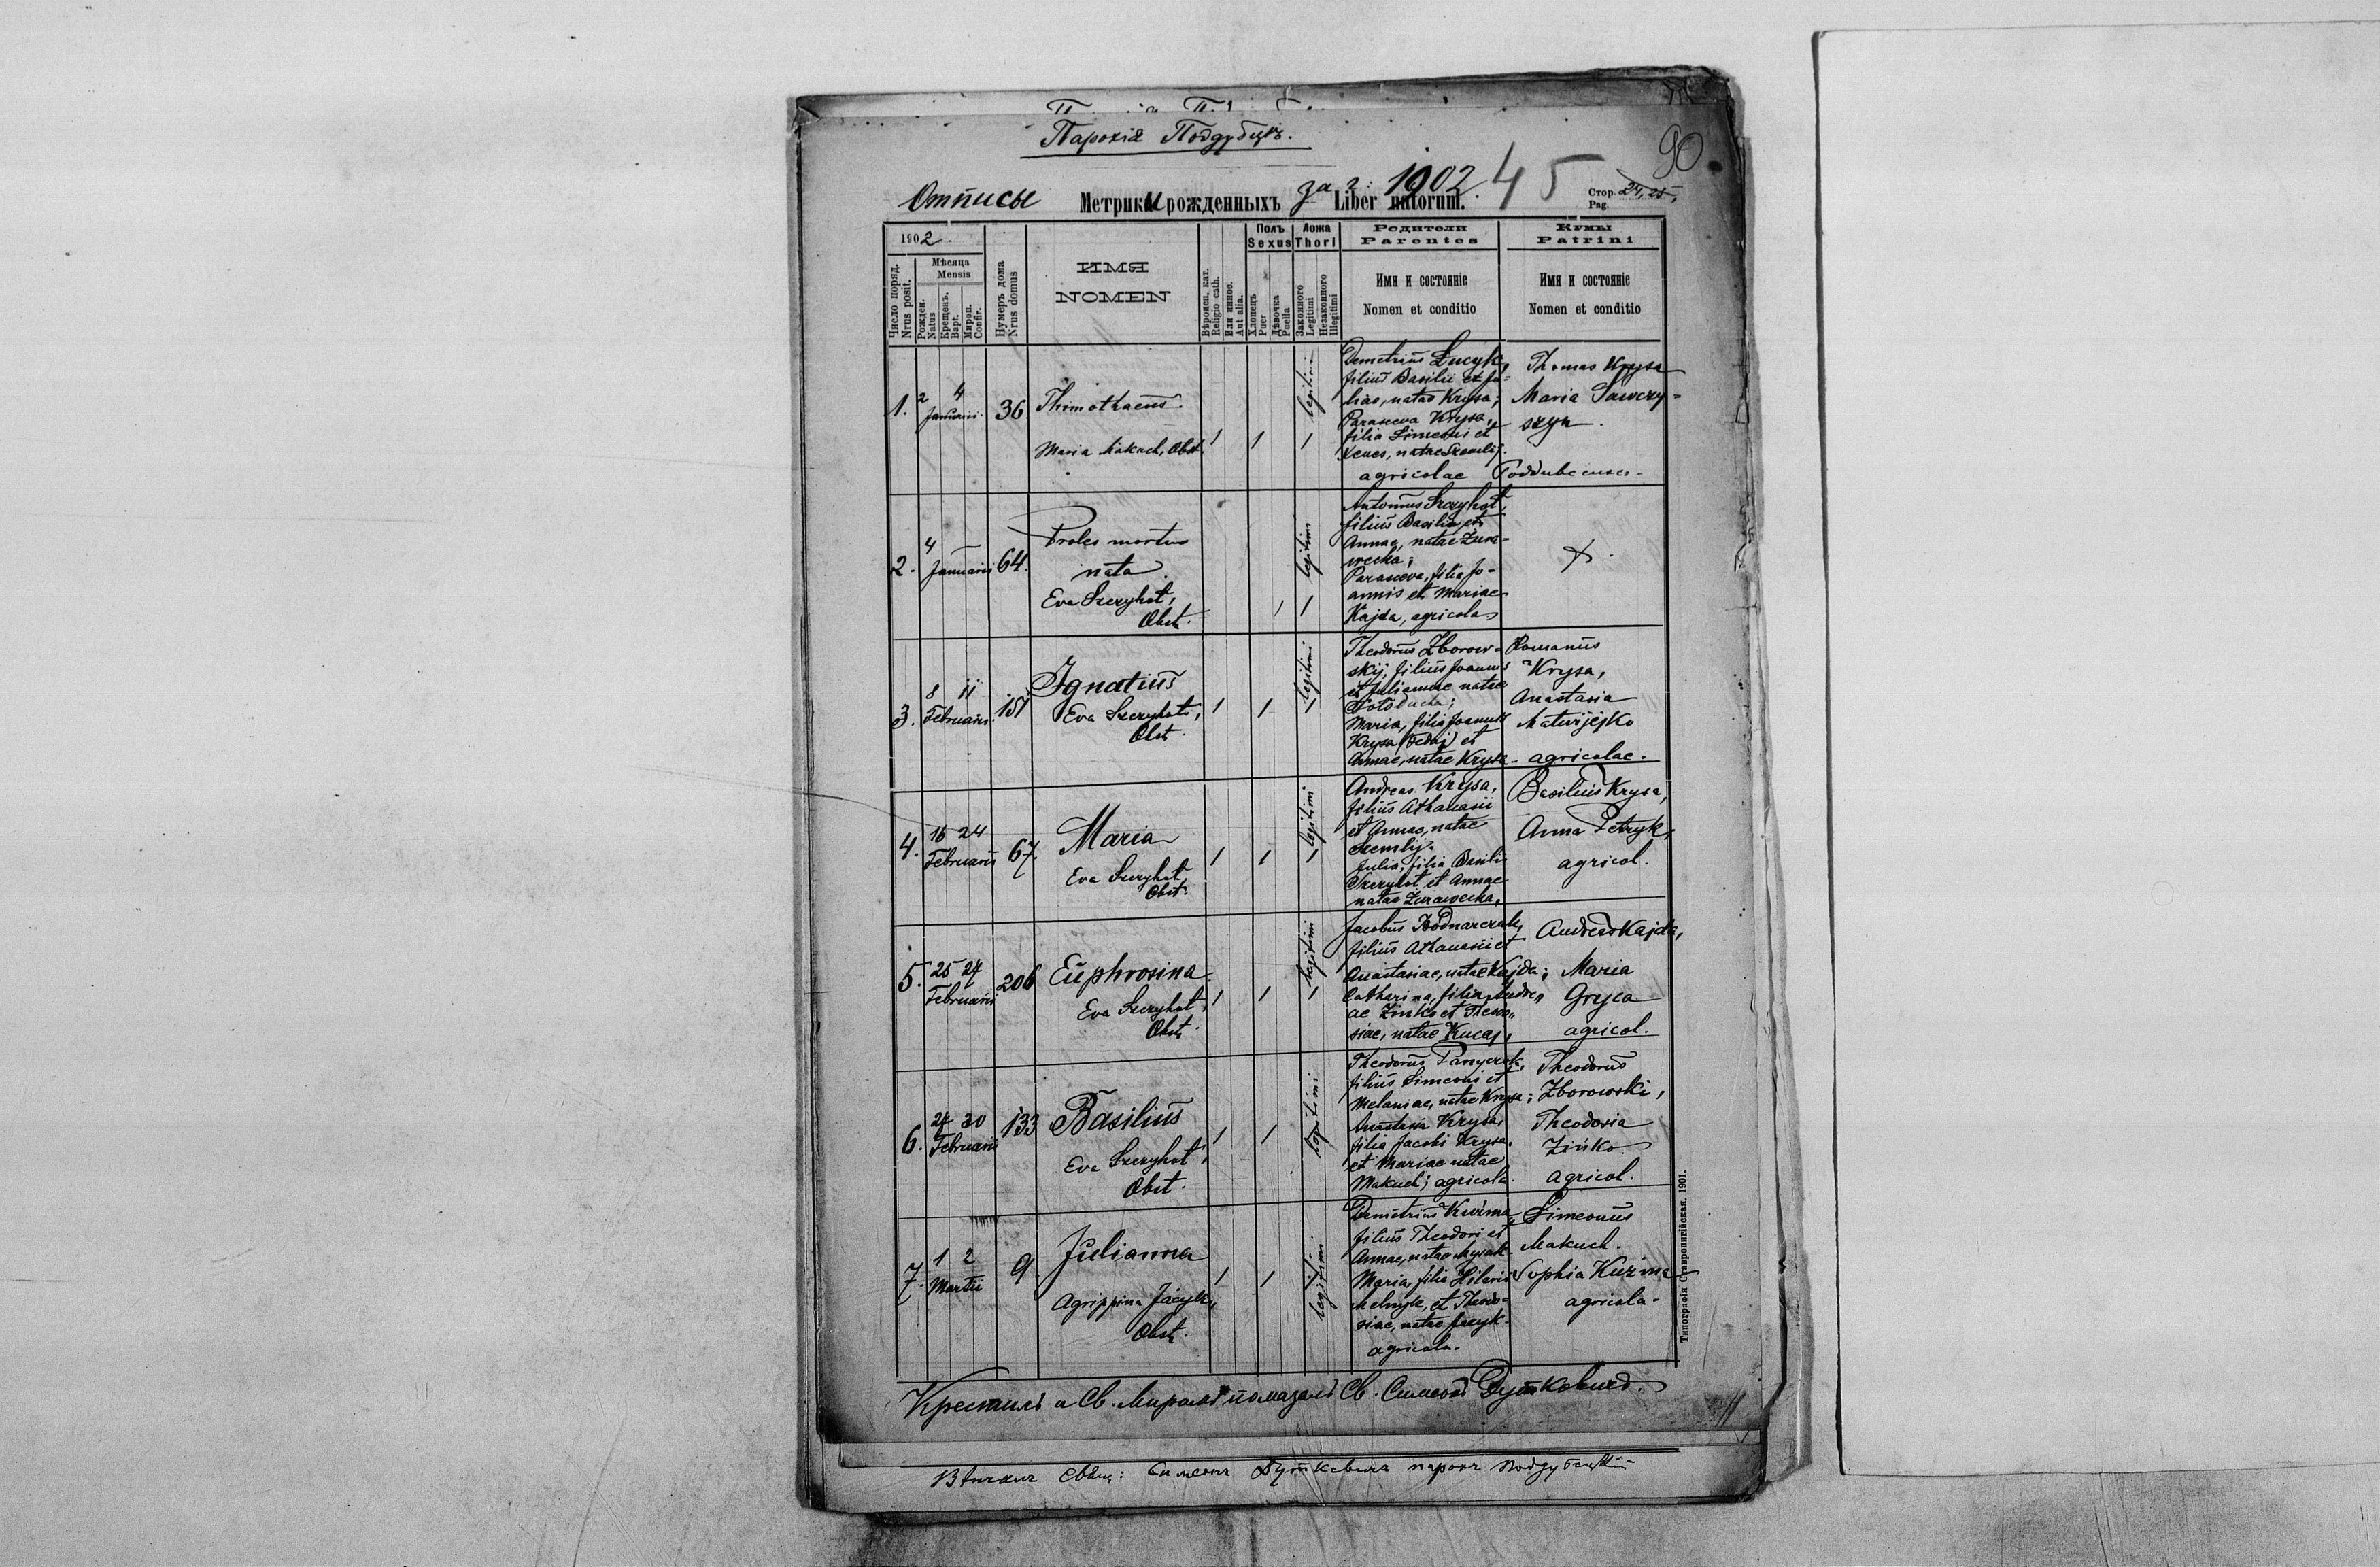 Парохія Поддубцѣ.
90
Отписы Метрики рожденныхъ за г: 1902 Liber natorum. 45
Стор. Pag. 24, 25,
1902
Число поряд. Nrus posit.
Мѣсяца Mensis
Рожден. Natus
Крещенъ. Bapt.
Миροп. Confir.
Нумеръ дома Nrus domus
ИМЯ
NOMEN
Вѣроисп. кат. Religio cath.
Или инное. Aut alia.
Полъ Sexus
Хлопецъ Puer
Дѣвочка Puella
Ложа Thori
Законного Legitimi
Незаконного Illegitimi
Родители Parentes
Имя и состоянiе
Nomen et conditio
Кумы Patrini
Имя и состоянiе
Nomen et conditio
1. 2 4 Januarii 36
Thimothaeus.
Maria Makuch, Obst.
1 1 1
legitimi
Demetrius Lucyk,
filius Basilii et Ju-
liae, natae Krysa;
Parasceva Krysa,
filia Simeoni et
Xenes, natae Szemlij.
agricolae
Thomas Krysa
Maria Sawczy-
szyn.
Poddubcenses.
2. 4 Januarii 64.
Proles mortuo
nata
Eva Szczyhot,
Obst.
1 1
legitimi
Antonius Szczyhot,
filius Basilii et
Annae, natae Zura-
wecka;
Parasceva, filia Jo-
annis et Mariae
Kajda, agricolae
3. 8 11 Februarii 157
Ignatius
Eva Szczyhot,
Obst.
1 1 1
legitimi
Theodorus Zborow-
skij, filius Joannis
et Julianne natae
Maria, filia Joannis
Krysa (Fedaj) et
Annae, natae Krysa
Romanus
Krysa,
Anastasia
Matwijejko
agricolae.
4. 16 24 Februarii 67.
Maria
Eva Szczyhot,
Obst.
1 1 1
legitimi
Andreas Krysa,
filius Athanasii
et Annae, natae
Szemlij.
Julia, filia Basilii
Szczyhot et Annae
natae Zurawecka,
Basilius Krysa,
Anna Petryk,
agricol.
5. 25 27 Februarii 206
Euphrosina
Eva Szczyhot,
Obst.
1 1 1
legitimi
Jacobus Bodnarczuk,
filius Athanasii et
Anastasiae, natae Kajda;
Catharina, filia Andre-
ae Zinko et Theodo-
siae, natae Kucaj,
Andreas Kajda,
Maria
Gryca
agricol.
6. 27 30 Februarii 133
Basilius
Eva Szczyhot,
Obst.
1 1
legitimi
Theodorus Panyczok,
filius Simeoni et
Melaniae, natae Krysa;
Anastasia Krysa,
filia Jacobi Krysa
et Mariae natae
Makuch; agricola.
Theodorus
Zborowski,
Theodosia
Zińko.
agricol.
7. 1 2 Martii 9
Julianna
Agrippina Jacyk,
Obst.
1 1
legitimi
Demetrius Kuźma,
filius Theodori et
Annae, natae
Maria, filia Hilarii
Melnyk, et Theodo-
siae, natae Jacyk
agricola.
Simeonus
Makuch.
Sophia Kuźma
agricola.
Типографія Ставропигійская. 1901.
Крестилъ и Св. Миромъ помазалъ Св. Симеонъ Дутковичъ.
Симеонъ Дутковичъ парохъ Поддубецкій